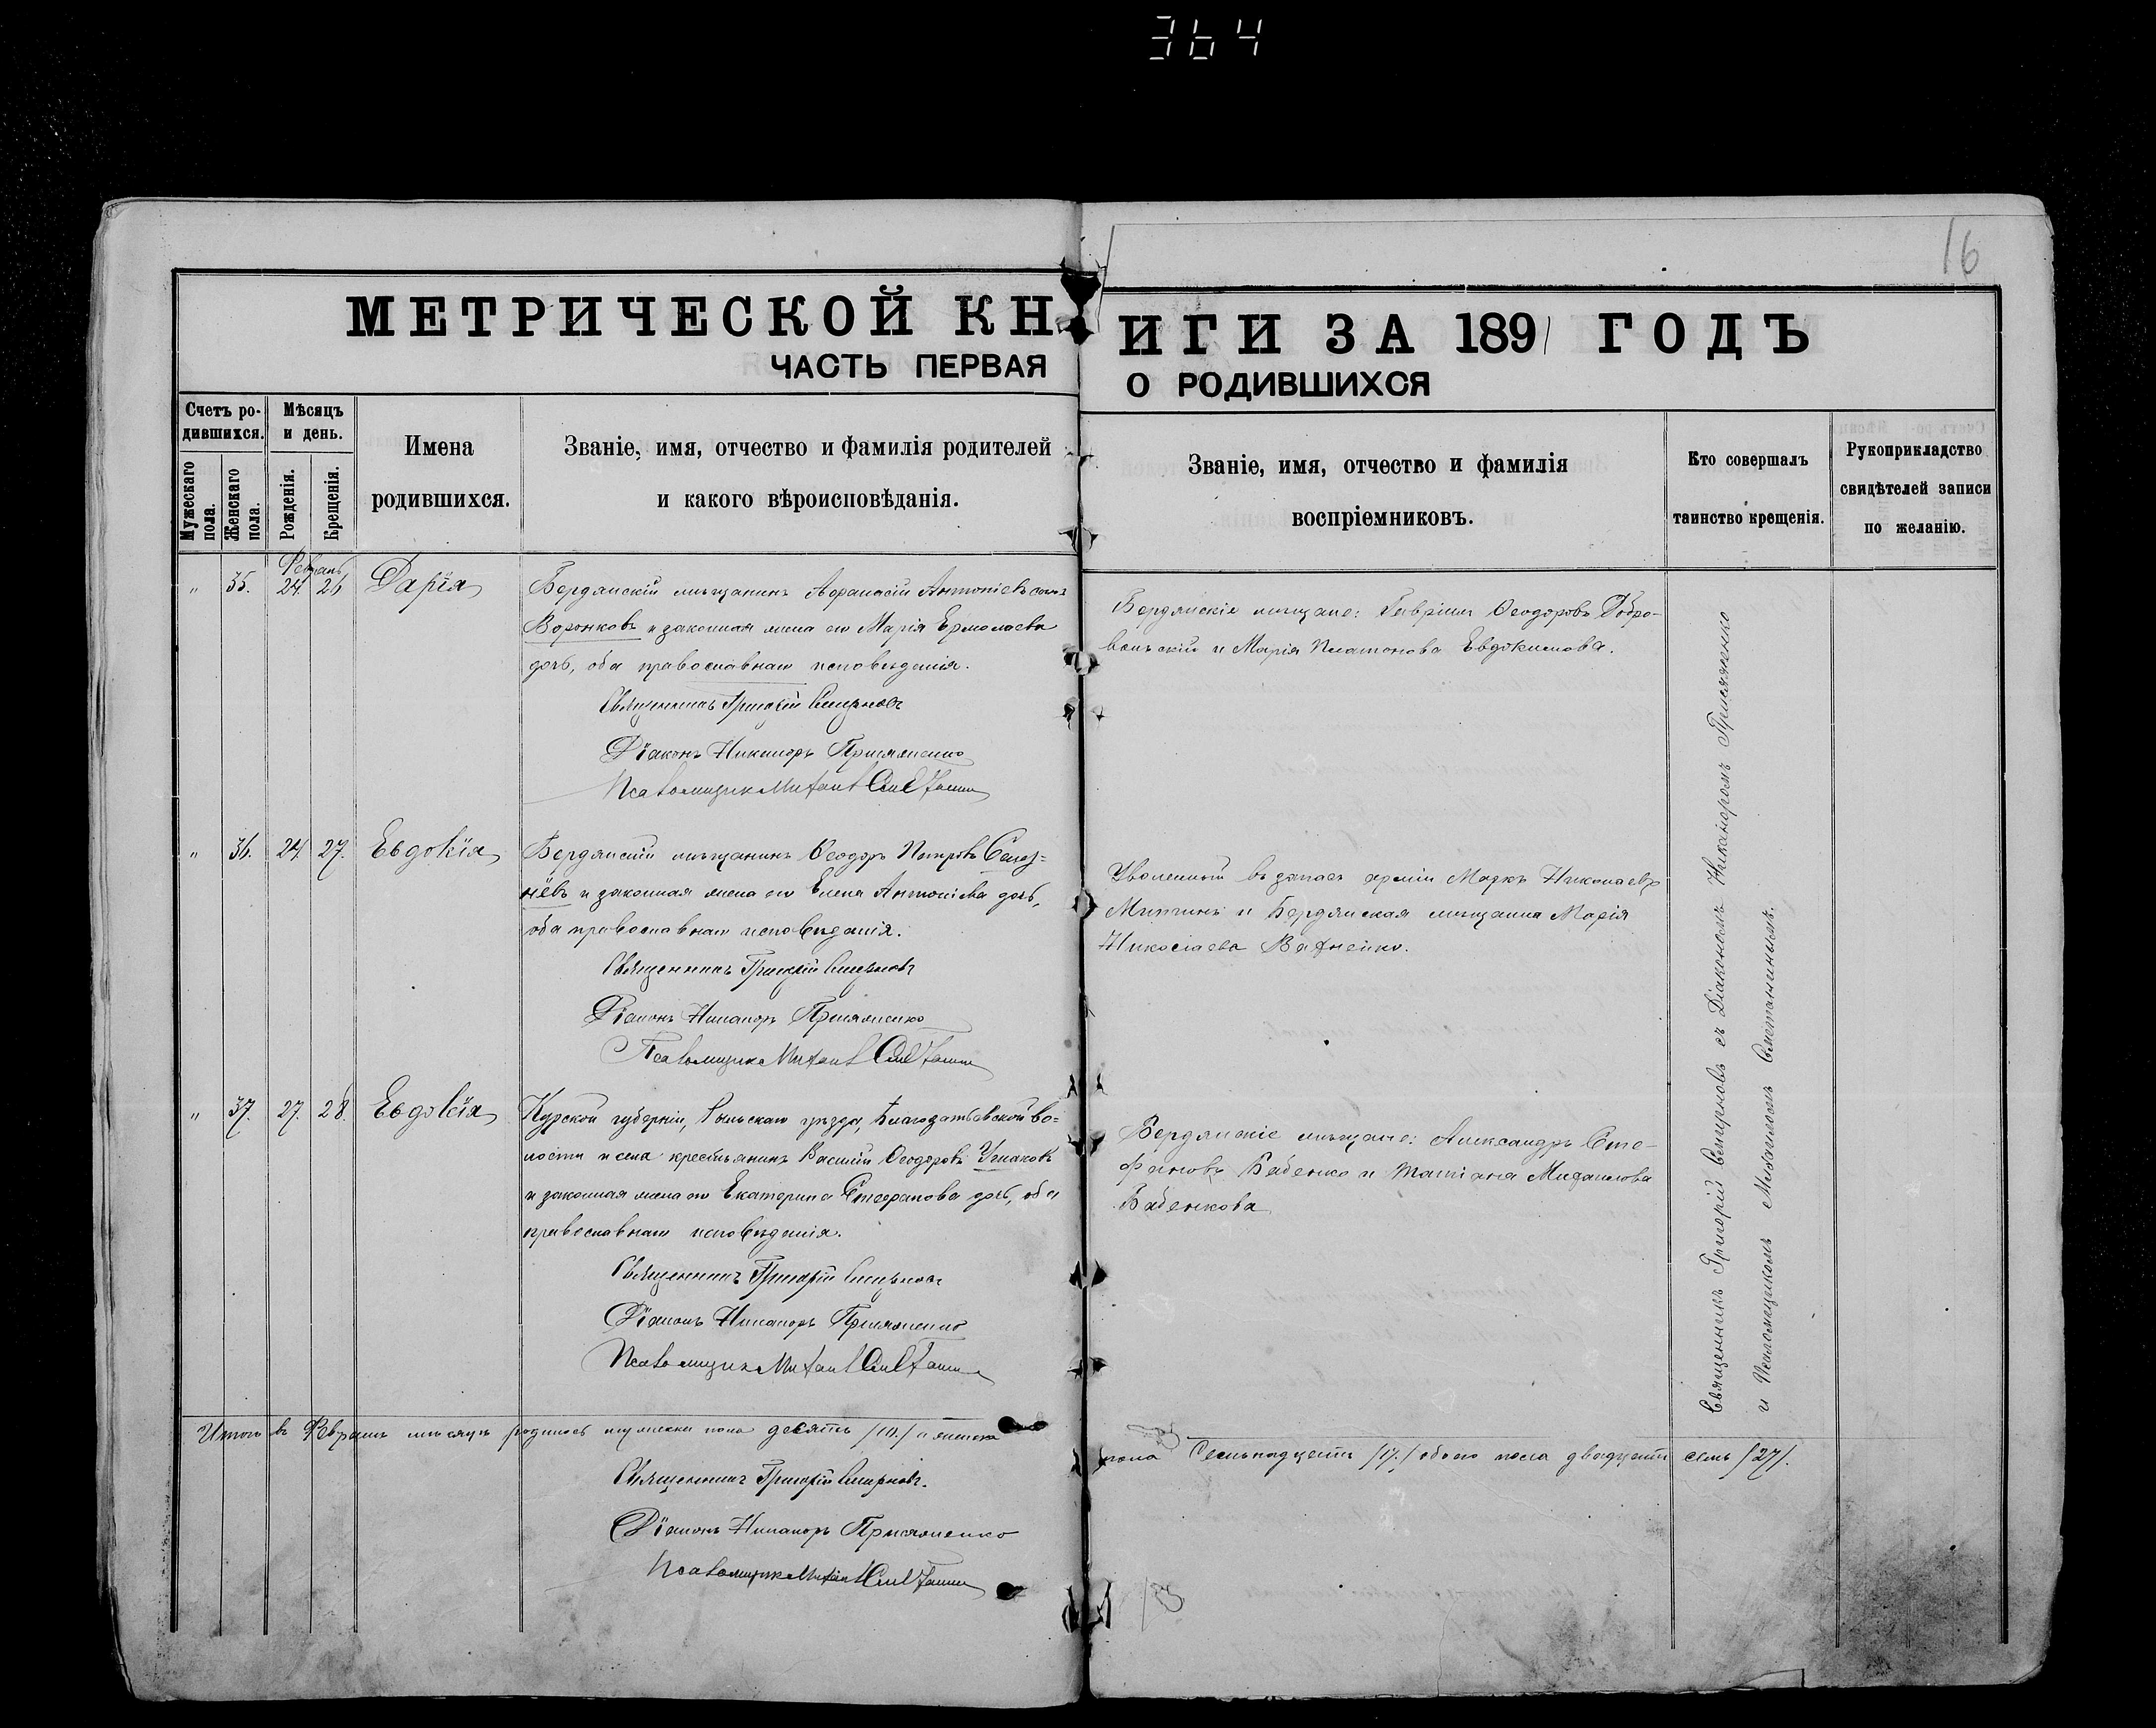 364
16
МЕТРИЧЕСКОЙ КНИГИ ЗА 1891 ГОДЪ
ЧАСТЬ ПЕРВАЯ О РОДИВШИХСЯ
Счетъ ро-
дившихся.
Мужескаго пола.
Женскаго пола.
Мѣсяцъ
и день.
Рожденія.
Крещенія.
Имена
родившихся.
Званіе, имя, отчество и фамилія родителей
и какого вѣроисповѣданія.
Званіе, имя, отчество и фамилія
воспріемниковъ.
Кто совершалъ
таинство крещенія.
Рукоприкладство
свидѣтелей записи
по желанію.
Февраль
" 35. 24. 26 Дарія
Бердянскій мѣщанинъ Афанасій Антоніевъ сынъ
Воронковъ и законная жена его Марія Ермолаева
дочь, оба православнаго исповѣданія.
Священникъ Григорій Смирновъ
Діаконъ Никаноръ Присяженко
Псаломщикъ Михаилъ Сметанинъ
Бердянскіе мѣщане: Гавріилъ Ѳеодоровъ Добро-
вольскій и Марія Платонова Евдокимова.
" 36. 24. 27. Евдокія
Бердянскій мѣщанинъ Ѳеодоръ Петровъ Селез-
нёвъ и законная жена его Елена Антоніева дочь,
оба православнаго исповѣданія.
Священникъ Григорій Смирновъ
Діаконъ Никаноръ Присяженко
Псаломщикъ Михаилъ Сметанинъ
Уволенный въ запасъ арміи Маркъ Николаевъ
и Бердянская мѣщанка Марія
Николаева
" 37. 27. 28. Евдокія
Курской губерніи, Рыльскаго уѣзда, Благодатовской во-
лости и села крестьянинъ Василій Ѳеодоровъ Ушаковъ
и законная жена его Екатерина Стефанова дочь, оба
православнаго исповѣданія.
Священникъ Григорій Смирновъ
Діаконъ Никаноръ Присяженко
Псаломщикъ Михаилъ Сметанинъ
Бердянскіе мѣщане: Александръ Сте-
фановъ Бабенко и Татіана Михаилова
Бабенкова
Священникъ Григорій Смирновъ съ Діакономъ Никаноромъ Присяженко
и Псаломщикомъ Михаиломъ Сметанинымъ.
Итого въ Февралѣ мѣсяцѣ родилось мужеска пола десять /10./ и женска
пола Семьнадцать /17./ обоего пола двадцать семь /27/.
Священникъ Григорій Смирновъ.
Діаконъ Никаноръ Присяженко
Псаломщикъ Михаилъ Сметанинъ